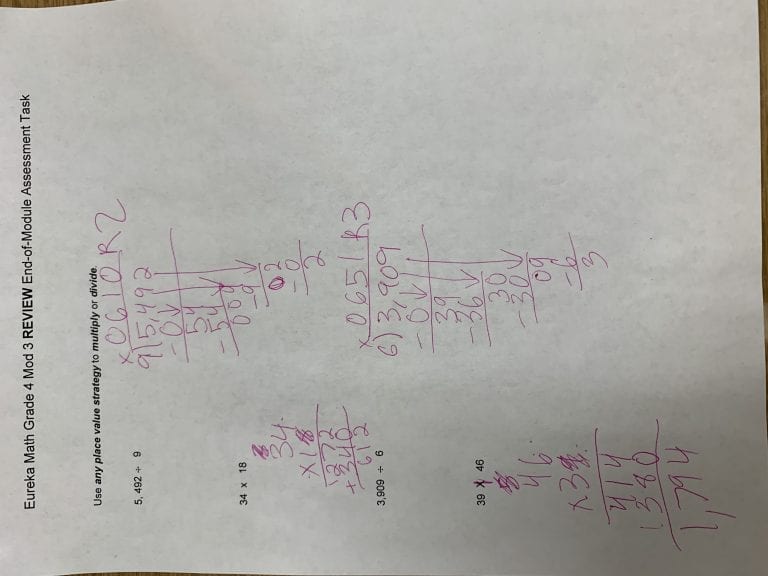 Eureka Math Grade 4 Mod 3 REVIEW End-of-Module Assessment Task
Use any place value strategy to multiply or divide.
5, 492 ÷ 9
0610 R2
9)5,492
-0
54
-54
009
-9
02
-0
2
34 x 18
34
x18
272
+340
612
3,909 ÷ 6
0651 R3
6)3,909
-0
39
-36
30
-30
09
-6
3
39 x 46
46
x39
414
1380
1,794